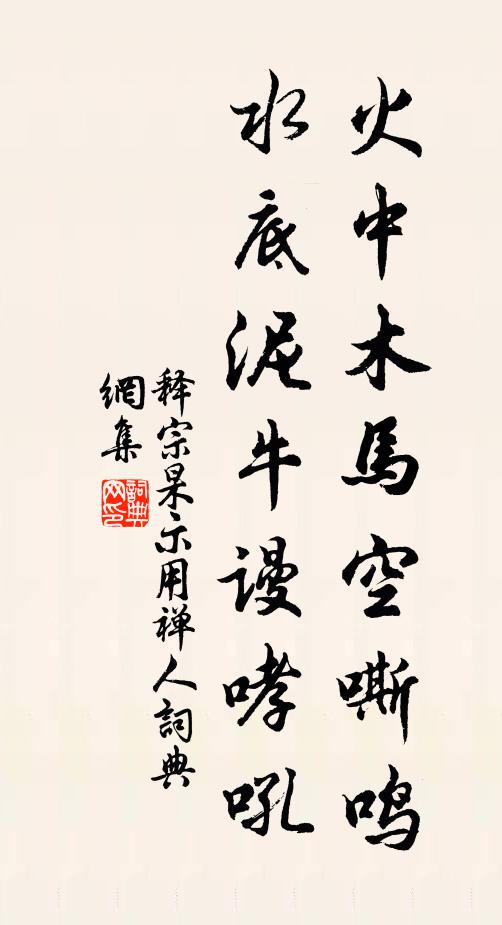 火中木馬空嘶鸣
水底泥牛谩哮吼
释宗杲示用禅人詞典
網集
詞典网印